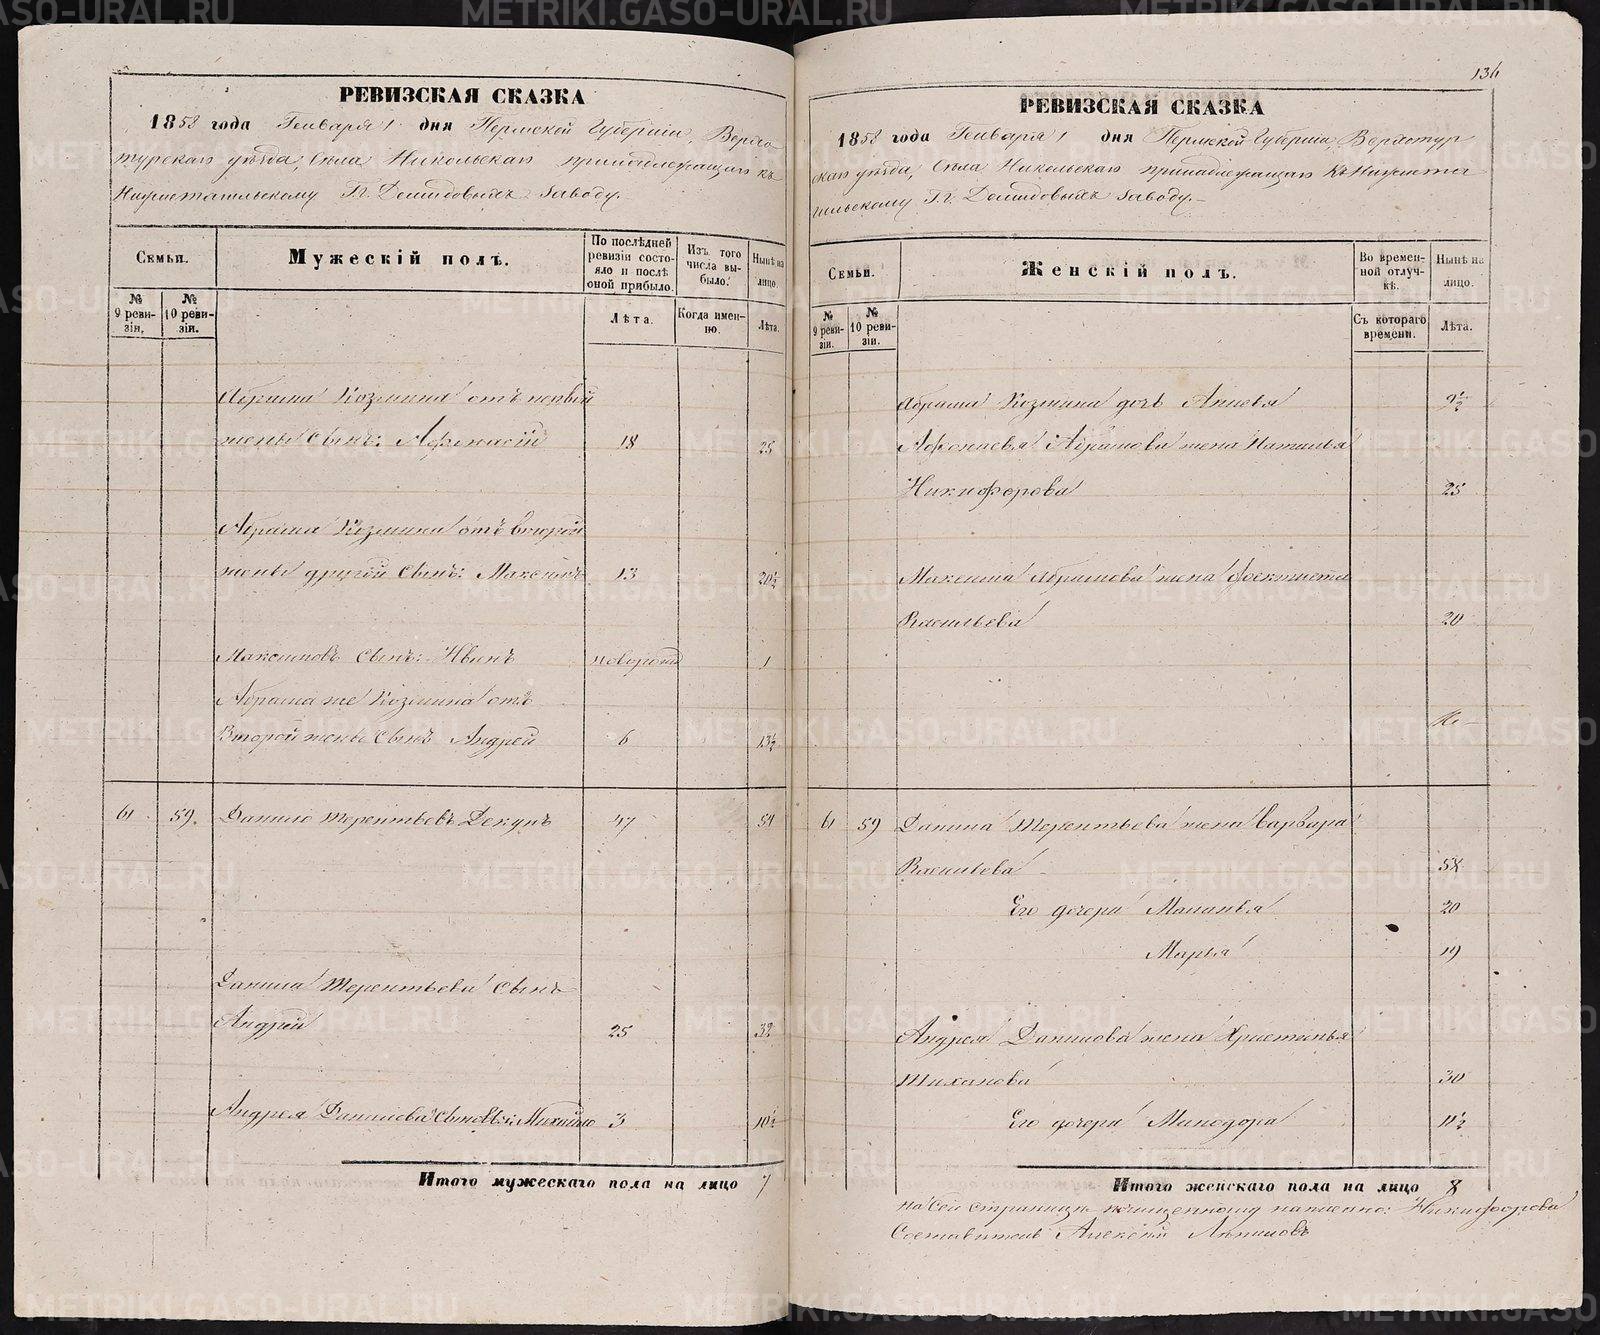 РЕВИЗСКАЯ СКАЗКА
1858 года Генваря 1 дня Пермской Губерніи, Верхо
турскаго уѣзда, Села Никольскаго принадлежащаго къ
Нижнетагильскому Гг. Демидовыхъ Заводу.
Семьи.
Мужескій полъ.
По послѣдней ревизіи состояло и послѣ оной прибыло.
Изъ того числа выбыло.
Нынѣ на лицо.
№ 9 ревизіи.
№ 10 ревизіи.
Лѣта.
Когда именно.
Лѣта.
Абрама Козмина отъ первой
жены сынъ: Афонасій 18 25
Абрама Козмина отъ второй
жены другой сынъ: Максимъ 13 20½
Максимовъ сынъ: Иванъ новорожд 1
Абрама же Козмина отъ
второй жены сынъ Андрей 6 13½
61 59. Данило Терентьевъ Декунъ 47 54
Данила Терентьева сынъ
Андрей 25 32
Андрея Данилова сыновья: Михайло 3 10½
Итого мужескаго пола на лицо 7
136
РЕВИЗСКАЯ СКАЗКА
1858 года Генваря 1 дня Пермской Губерніи, Верхотур
скаго уѣзда, Села Никольскаго принадлежащаго къ Нижнета
гильскому Гг. Демидовыхъ Заводу.
Семьи.
Женскій полъ.
Во временной отлучкѣ.
Нынѣ на лицо.
№ 9 ревизіи.
№ 10 ревизіи.
Съ котораго времени.
Лѣта.
Абрама Козмина дочь Анисья 9½
Афонасья Абрамова жена Наталья
Никифорова 25
Максима Абрамова жена Феоктиста
Васильева 20
61 59 Данила Терентьева жена Варвара
Васильева 58
Его дочери Маланья 20
Марья 19
Андрея Данилова жена Христинья
Тиханова 30
Его дочери Минодора 11½
Итого женскаго пола на лицо 8
На сей страницѣ по чищенному написано: Никифорова
Составитель Алексѣй
METRIKI.GASO-URAL.RU